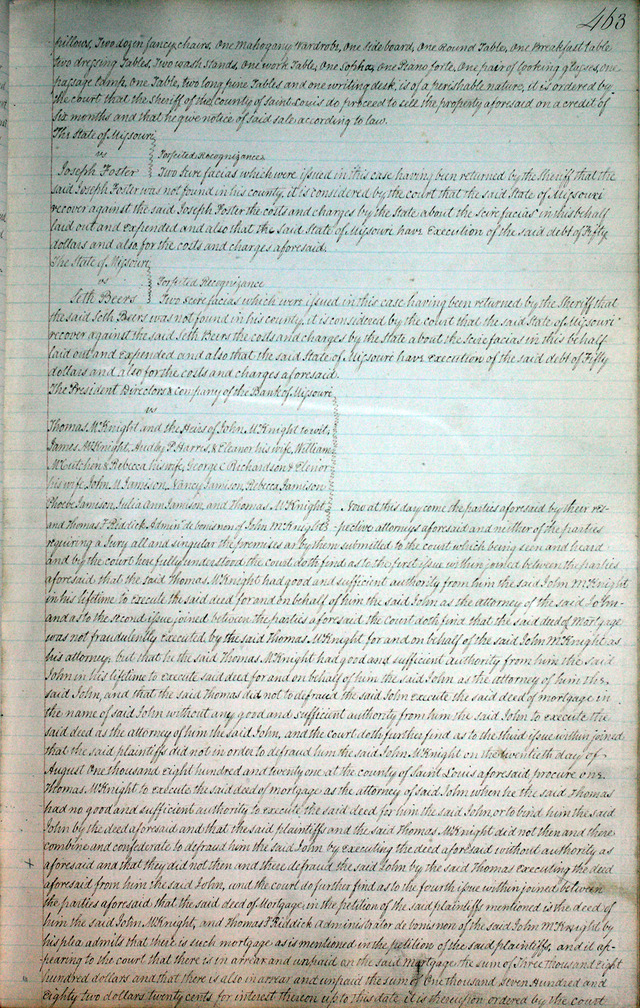 463
pillows, Two dozen fancy chairs, One Mahogany Wardrobe, One sideboard, One Round Table, One Breakfast table
two dressing Tables, Two wash stands, One work Table, One Sopha, One Piano forte, One pair of looking glasses, one
passage Lamp, One Table, two long pine Tables and one writing desk, is of a perishable nature, it is ordered by
the court that the Sheriff of the county of Saint Louis do proceed to sell the property aforesaid on a credit of
Six months and that he give notice of said sale according to law.
The State of Missouri
vs Forfeited Recognizance
Joseph Foster Two Scire facias which were issued in this case having been returned by the Sheriff that the
said Joseph Foster was not found in his county, it is considered by the court that the said State of Missouri
recover against the said Joseph Foster the costs and charges by the State about the Scire facias in this behalf
laid out and expended and also that the said State of Missouri have Execution of the said debt of Fifty
dollars and also for the costs and charges aforesaid.
The State of Missouri
vs Forfeited Recognizance
Seth Beers Two Scire facias which were issued in this case having been returned by the Sheriff that
the said Seth Beers was not found in his county, it is considered by the court that the said State of Missouri
recover against the said Seth Beers the costs and charges by the State about the Scire facias in this behalf
laid out and expended and also that the said State of Missouri have Execution of the said debt of Fifty
dollars and also for the costs and charges aforesaid.
The President Directors & company of the Bank of Missouri
vs
Thomas McKnight and the Heirs of John McKnight to wit,
James McKnight, Audley P. Harris, & Eleanor his wife, William
McCutchen & Rebecca his wife, George C Richardson & Elenor
his wife, John M Jamison, Nancy Jamison, Rebecca Jamison
Phoebe Jamison, Julia Ann Jamison, and Thomas McKnight Now at this day come the parties aforesaid by their res-
and Thomas F Riddick Admin de bonis non of John McKnight -pective attorneys aforesaid and neither of the parties
requiring a Jury all and singular the premises are by them submitted to the court which being seen and heard
and by the court here fully understood the court doth find as to the first issue within joined between the parties
aforesaid that the said Thomas McKnight had good and sufficient authority from him the said John McKnight
in his lifetime to execute the said deed for and on behalf of him the said John as the attorney of the said John-
and as to the second issue joined between the parties aforesaid the court doth find, that the said deed of Mortgage
was not fraudulently executed by the said Thomas McKnight for and on behalf of the said John McKnight as
his attorney, but that he the said Thomas McKnight had good and sufficient authority from him the said
John in his lifetime to execute said deed for and on behalf of him the said John as the attorney of him the
said John, and that the said Thomas did not to defraud the said John execute the said deed of mortgage in
the name of said John without any good and sufficient authority from him the said John to execute the
said deed as the attorney of him the said John, and the court doth further find as to the third issue within joined
that the said plaintiffs did not in order to defraud him the said John McKnight on the twentieth day of
August One thousand Eight hundred and twenty one at the county of Saint Louis aforesaid procure one
Thomas McKnight to execute the said deed of mortgage as the attorney of said John when he the said Thomas
had no good and sufficient authority to execute the said deed for him the said John, or to bind him the said
John by the deed aforesaid and that the said plaintiffs and the said Thomas McKnight did not then and there
combine and confederate to defraud him the said John by executing the deed aforesaid without authority as
aforesaid and that they did not then and there defraud the said John by the said Thomas executing the deed
aforesaid from him the said John, and the court do further find as to the fourth issue within joined between
the parties aforesaid that the said deed of Mortgage in the petition of the said plaintiffs mentioned is the deed of
him the said John McKnight, and Thomas F Riddick administrator de bonis non of the said John McKnight by
his plea admits that there is such mortgage as is mentioned in the petition of the said plaintiffs, and it ap-
pearing to the court that there is in arrear and unpaid on the said Mortgage the sum of Three thousand Eight
hundred dollars and that there is also in arrear and unpaid the sum of One thousand Seven hundred and
Eighty two dollars twenty cents for interest thereon up to this date, it is thereupon ordered by the court